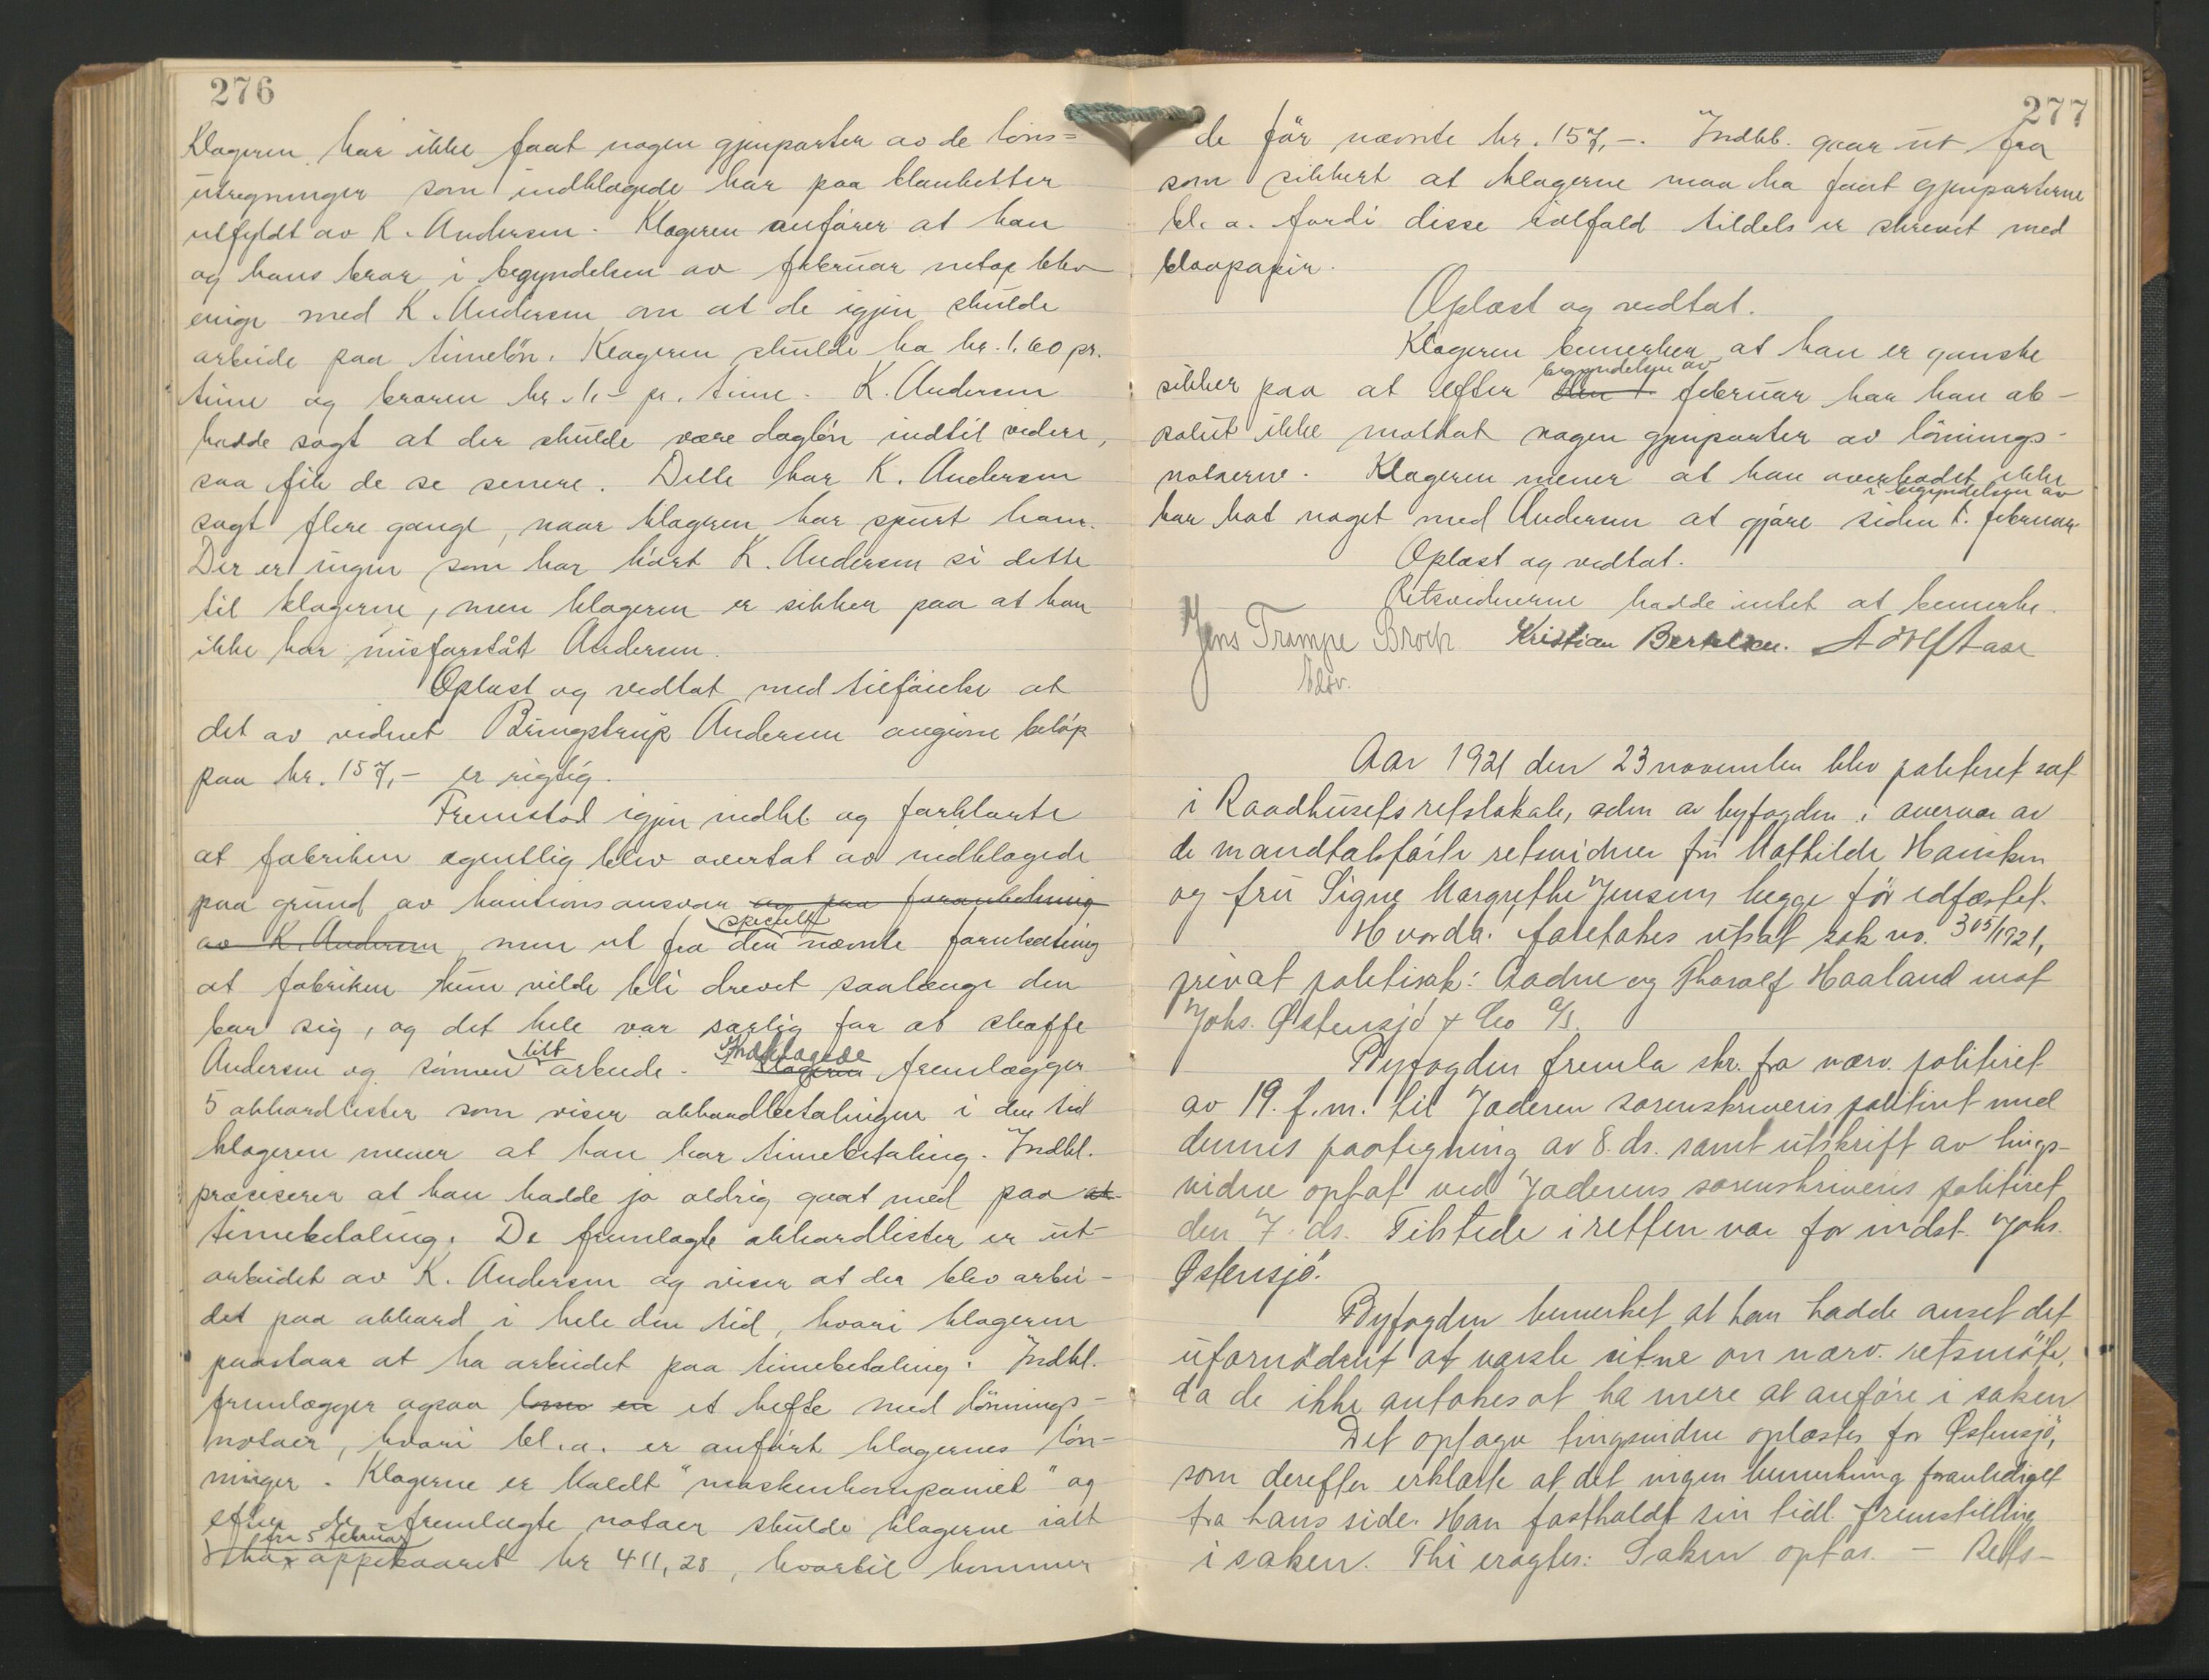 276
Klageren har ikke faat nogen gjenparter av de löns=
utregninger som indklagede har paa blanketter
utfyldt av K. Andersen. Klageren anförer at han
og hans bror i begyndelsen av februar netop blev
enige med K. Andersen om at de igjen skulde
arbeide paa timelön. Klageren skulde ha kr. 1.60 pr.
time og broren kr. 1,- pr. time. K. Andersen
hadde sagt at der skulde være daglön indtil videre,
saa fik de se senere. Dette har K. Andersen
sagt flere gange, naar klageren har spurt ham.
Der er ingen som har hört K. Andersen si dette
til klagerne, men klageren er sikker paa at han
ikke har misforståt Andersen.
Oplæst og vedtat med tilföielse at
det av vidnet Bringstrup Andersen angivne belöp
paa kr. 157,- er rigtig.
Fremstod igjen indkl. og forklarte
at fabriken egentlig blev overtat av indklagede
paa grund av kautionsansvar og paa foranledning
av K. Andersen, men ut fra den specielt nævnte forutsætning
at fabriken kun vilde bli drevet saalænge den
bar sig, og det hele var særlig for at skaffe
Andersen og sönnen litt arbeide. Klageren Indklagede fremlægger
5 akkordlister som viser akkordbetalingen i den tid
klageren mener at han har timebetaling. Indkl.
præciserer at han hadde jo aldrig gaat med paa at
timebetaling. De fremlagte akkordlister er ut-
arbeidet av K. Andersen og viser at der blev arbei-
det paa akkord i hele den tid, hvori klageren
paastaar at ha arbeidet paa timebetaling. Indkl.
fremlægger ogsaa en et hefte med lönnings-
notaer, hvori bl.a. er anfört klagernes lön-
ninger. Klagerne er kaldt "maskenkompaniet" og
efter de fremlagte notaer skulde klagerne ialt
ha fra 5 februar oppebaaret kr 411,28, hvortil kommer
277
de för nævnte kr. 157,-. Indkl. gaar ut fra
som sikkert at klagerne maa ha faat gjenparterne
bl. a. fordi disse ialfald tildels er skrevet med
blaapapir.
Oplæst og vedtat.
Klageren bemerker at han er ganske
sikker paa at efter den 1 begyndelsen av februar har han ab-
solut ikke mottat nogen gjenparter av lönnings-
notaerne. Klageren mener at han overhodet ikke
har hat noget med Andersen at gjöre siden 1. i begyndelsen av februar
Oplæst og vedtat.
Retsvidnerne hadde intet at bemerke.
Jens Trampe Broch Kristian Bertelsen. Adolf Aase
Aar 1921 den 23 november blev politiret sat
i Raadhusets retslokale, adm. av byfogden i overvær av
de mandtalsförte retsvidner fru Mathilde Hansken
og fru Signe Margrethe Jensen begge för edfæstet.
Hvorda: foretokes utsat sak no. 305/1921,
privat politisak: Aadne og Thoralf Haaland mot
Johs. Østensjö & Co A/S.
Byfogden fremla skr. fra nærv. politiret
av 19. f.m. til Jæderen sorenskriveris politiret med
dennes paategning av 8. ds. samt utskrift av tings-
vidne optat ved Jæderens sorenskriveris politiret
den 7. ds. Tilstede i retten var for indst. Johs.
Østensjö.
Byfogden bemerket at han hadde anset det
ufornödent at varsle citne om nærv. retsmöte,
da de ikke antokes at ha mere at anföre i saken
Det optagne tingsvidne oplæstes for Østensjö,
som derefter erklærte at det ingen bemerkning foranlediget
fra hans side. Han fastholdt sin tidl. fremstilling
i saken. Thi eragtes: Saken optas. - Rets-